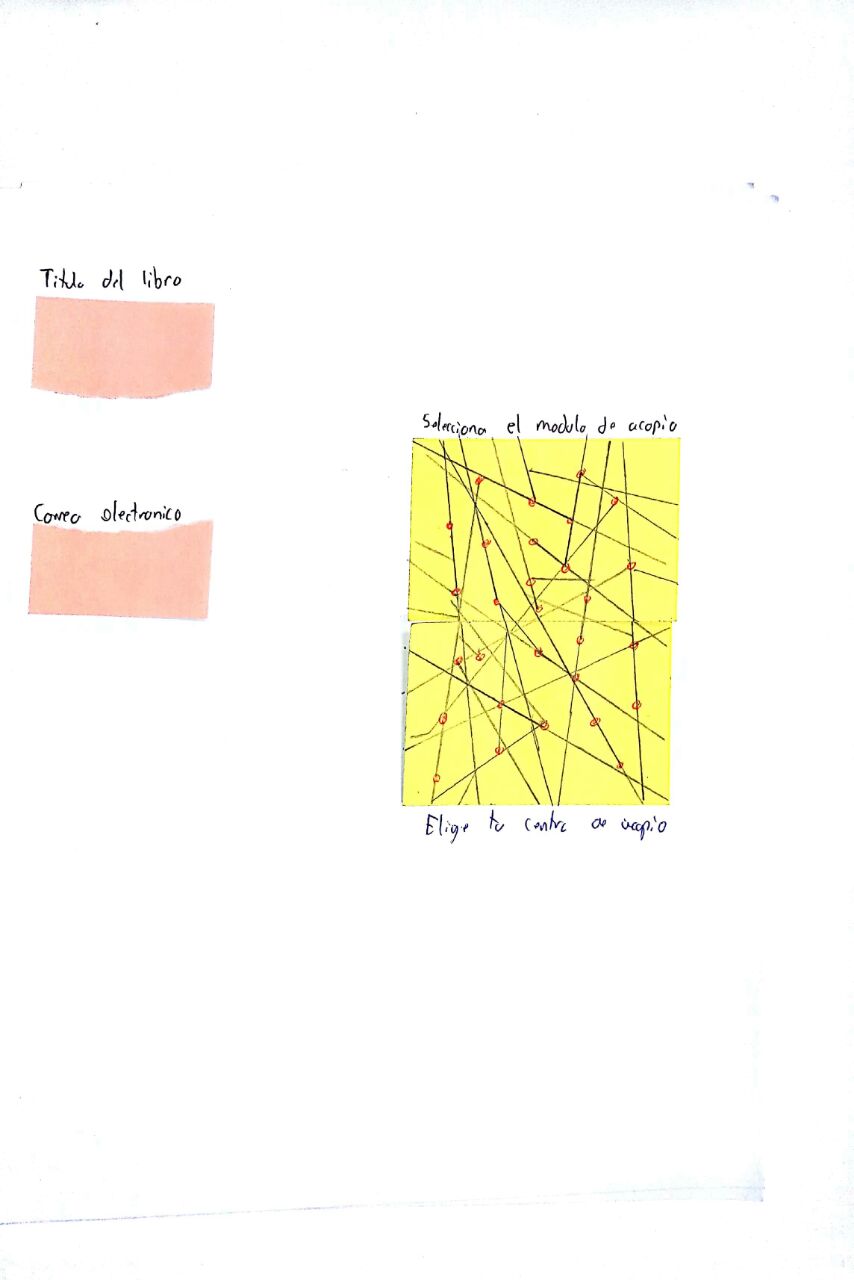 Titulo del libro
Correo electronico
Selecciona el modulo de acopio
Elige tu centro de acopio